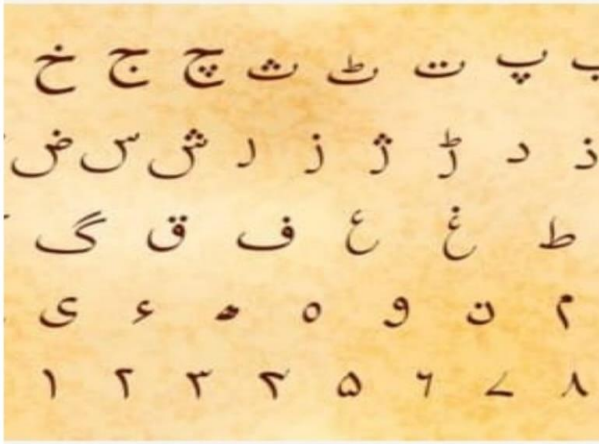 پ ت ٹ ث چ ج خ
ذ د ڑ ژ ز ر ش س ض
ط غ ع ف ق گ
م ن و ہ ھ ء ی
۱ ۲ ۳ ۴ ۵ ۶ ۷ ۸